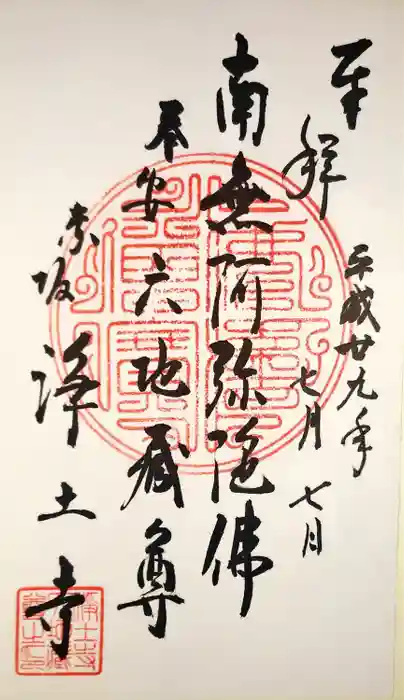 奉拝
平成廿九年
七月七日
南無阿弥陀佛
奉安六地蔵尊
赤坂浄土寺